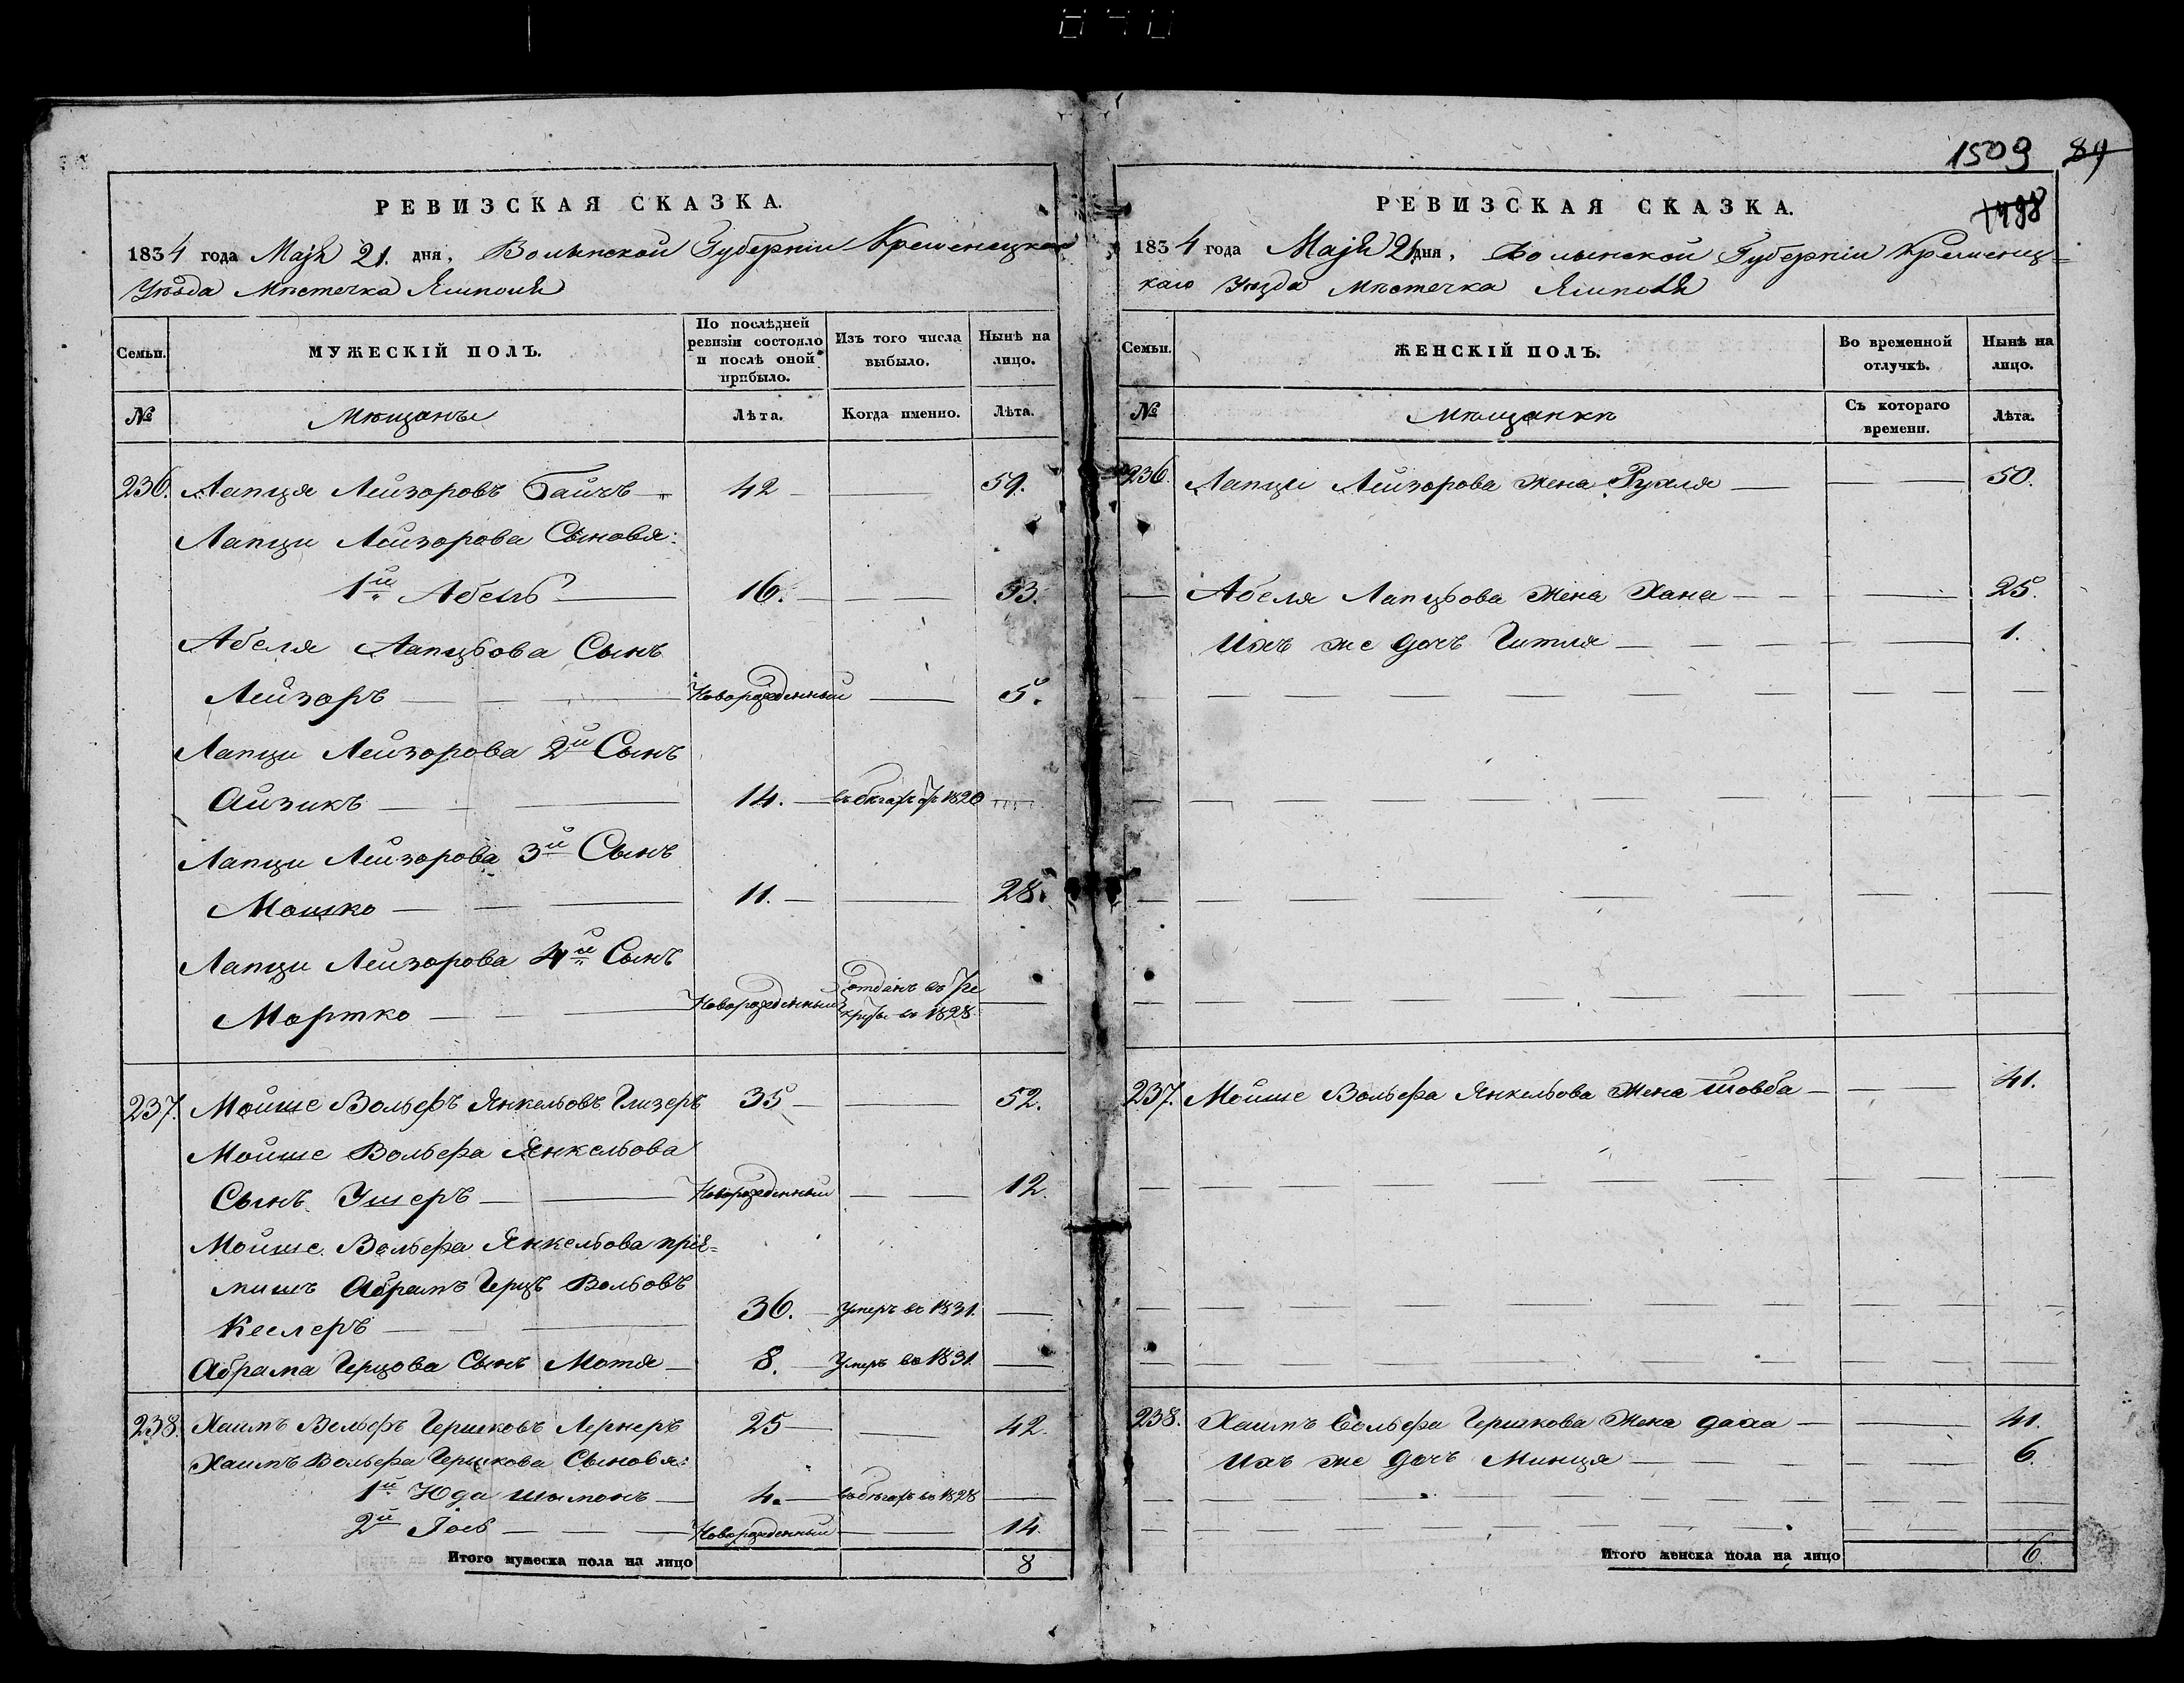 1509 89
1498
РЕВИЗСКАЯ СКАЗКА.
1834 года Маія 21. дня, Волынской Губерніи Кременецкаго
Уѣзда Мѣстечка Ямполя
Семьи.
МУЖЕСКІЙ ПОЛЪ.
По послѣдней ревизіи состояло и послѣ оной прибыло.
Изъ того числа выбыло.
Нынѣ на лицо.
№
Мѣщанъ
Лѣта.
Когда именно.
Лѣта.
236. Лапця Лейзоровъ Гайчъ 42 59.
Лапци Лейзорова Сыновья:
1й Абель 16. 33.
Абеля Лапцьова Сынъ
Лейзоръ Новорожденный 5.
Лапци Лейзорова 2й Сынъ
Айзикъ 14. въ бѣгахъ съ 1820
Лапци Лейзорова 3й Сынъ
Мошко 11. 28.
Лапци Лейзорова 4й Сынъ
Мортко Новорожденный отданъ въ ре
круты въ 1828.
237. Мойше Вольфъ Янкельовъ Глизеръ 35 52.
Мойше Вольфа Янкельова
Сынъ Ушеръ Новорожденный 12.
Мойше Вольфа Янкельова пріе=
мышъ Абрамъ Герцъ Вольовъ
Кеслеръ 36. Умеръ въ 1831.
Абрама Герцова Сынъ Мотя 8. Умеръ въ 1831.
238. Хаимъ Вольфъ Гершковъ Лернеръ 25 42.
Хаимъ Вольфа Гершкова Сыновья:
1й Юда Шимонъ 4. въ бѣгахъ въ 1828
2й Іось Новорожденный 14.
Итого мужеска пола на лицо 8
РЕВИЗСКАЯ СКАЗКА.
1834 года Маія 21 дня, Волынской Губерніи Кременец=
каго Уѣзда Мѣстечка Ямполя
Семьи.
ЖЕНСКІЙ ПОЛЪ.
Во временной отлучкѣ.
Нынѣ на лицо.
№
Мѣщанки
Съ котораго времени.
Лѣта.
236. Лапци Лейзорова жена Рухля 50.
Абеля Лапцьова жена Хана 25.
Ихъ же дочъ Гитля 1.
237. Мойше Вольфа Янкельова жена Товба 41.
238. Хаимъ Вольфа Гершкова жена 41.
Ихъ же дочъ Минця 6.
Итого женска пола на лицо 6.